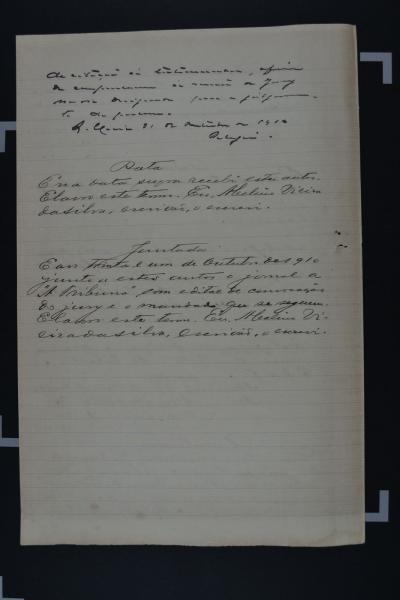 de citação ás testemunhas, afim
de comparecerem á sessão do Jury
no dia designado para o julgamen-
to do processo.
31 de Outubro 1910
Data
E na data supra recebi estes autos.
E lavro este termo. Eu, Vieira
da Silva, escrivão, o escrevi.
Juntada
E aos trinta e um de Outubro de 1910
junto a estes autos o jornal a
"A Tribuna" com edital de convocação
do jury e mandado que se seguem.
E lavro este termo. Eu, Vi-
eira da Silva, escrivão, o escrevi.